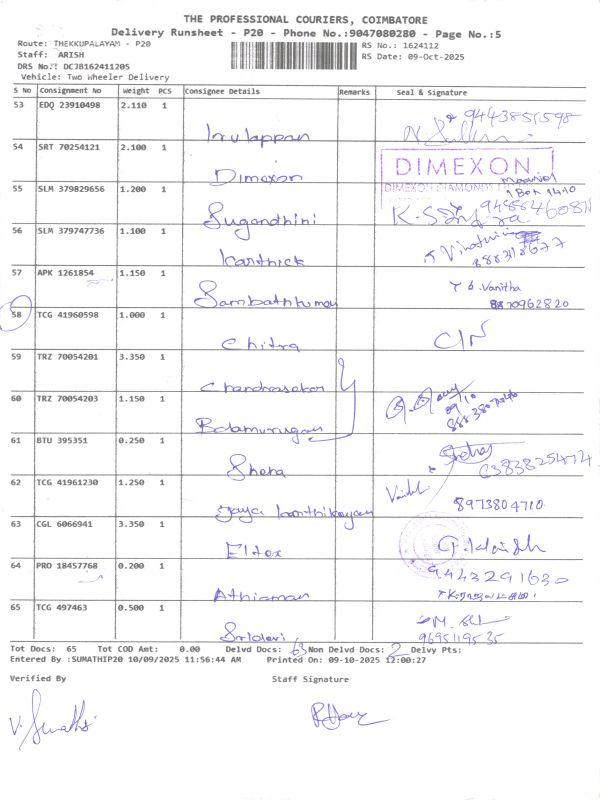 THE PROFESSIONAL COURIERS, COIMBATORE
Delivery Runsheet - P20 - Phone No.:9047080280 - Page No.:5
Route: THEKKUPALAYAM - P20 RS No.: 1624112
Staff: ARISH RS Date: 09-Oct-2025
DRS No.: DCJB162411205
Vehicle: Two Wheeler Delivery
S No Consignment No Weight PCS Consignee Details Remarks Seal & Signature
53 EDQ 23910498 2.110 1
9443851598
Irulappan
54 SRT 70254121 2.100 1
DIMEXON
Dimexon
DIMEXON DIAMONDS
55 SLM 379829656 1.200 1
Sugandhini
56 SLM 379747736 1.100 1
Karthick
57 APK 1261854 1.150 1
Vanitha
Sambathkumar 8870962820
58 TCG 41960598 1.000 1
Chitra C/N
59 TRZ 70054201 3.350 1
Chandrasekar
60 TRZ 70054203 1.150 1
09/10
Balamurugan
61 BTU 395351 0.250 1
Sheha
62 TCG 41961230 1.250 1
Jaya Karthikayan 8973804710
63 CGL 6066941 3.350 1
Eltex
64 PRO 18457768 0.200 1
9443291630
Athiaman
65 TCG 497463 0.500 1
Sridevi 9695119535
Tot Docs: 65 Tot COD Amt: 0.00 Delvd Docs: 63 Non Delvd Docs: 2 Delvy Pts:
Entered By :SUMATHIP20 10/09/2025 11:56:44 AM Printed On: 09-10-2025 12:00:27
Verified By Staff Signature
V. Sumathi